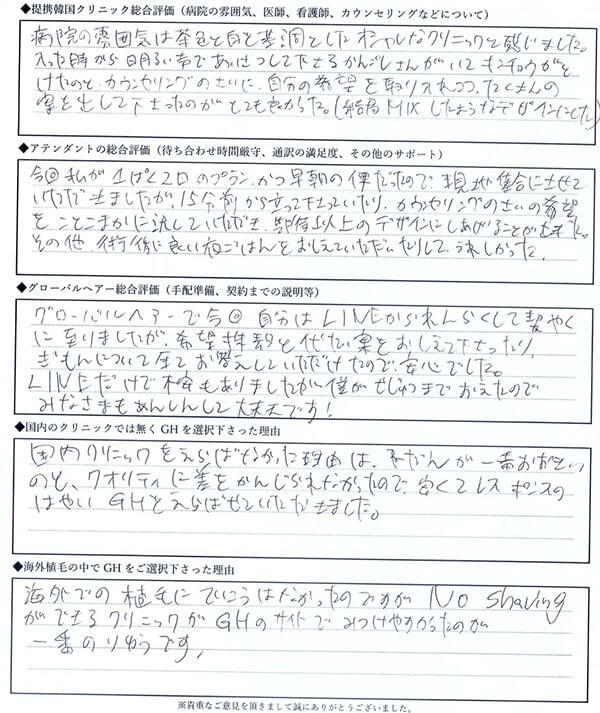 ◆提携韓国クリニック総合評価（病院の雰囲気、医師、看護師、カウンセリングなどについて）
病院の雰囲気は茶色と白を基調としたオシャレなクリニックと感じました。
入った時から明るい声であいさつして下さるかんごしさんがいてキンチョウがと
けたのと、カウンセリングのさいに、自分の希望を取り入れつつ、たくさんの
案を出して下さったのがとても良かった。（結局MIXしたようなデザインにした）
◆アテンダントの総合評価（待ち合わせ時間厳守、通訳の満足度、その他のサポート）
今回私が1泊2日のプランかつ早朝の便だったので、現地集合にさせて
いただきましたが、15分前から立って下さっていたり、カウンセリングのさいの希望
をことこまかに訳していただき、期待以上のデザインにしあげることができました。
その他、術後に良い夜ごはんをおしえていただいたりして、うれしかった。
◆グローバルヘアー総合評価（手配準備、契約までの説明等）
グローバルヘアーで今回自分はLINEかられんらくして契やく
に至りましたが、希望株数と代たい案をおしえて下さったり、
ぎもんについて全てお答えしていただけたので、安心でした。
LINEだけで不安もありましたが、僕がぜじゅつまでおえたので
みなさまもあんしんして大丈夫です！
◆国内のクリニックでは無くGHを選択下さった理由
国内クリニックをえらばなかった理由は、ねだんが一番おおきい
のと、クオリティに差をかんじられなかったので、安くてレスポンスの
はやいGHをえらばせていただきました。
◆海外植毛の中でGHをご選択下さった理由
海外での植毛にていこうはなかったのですが No Shaving
ができるクリニックがGHのサイトでみつけやすかったのが
一番のりゆうです。
※貴重なご意見を頂きまして誠にありがとうございました。